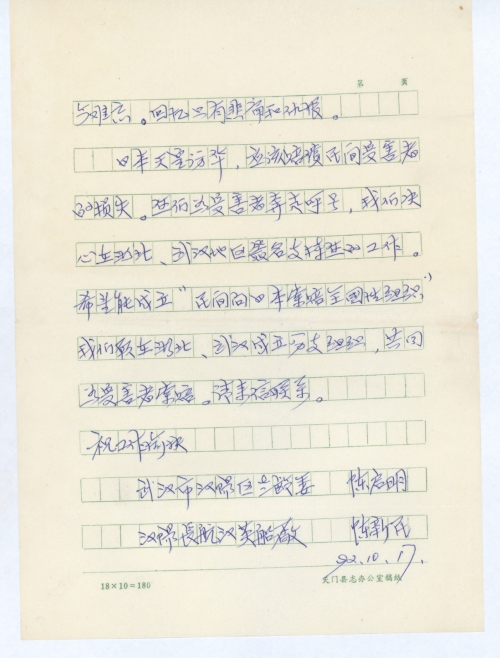 第 页
与难忘。回忆只有悲痛和水恨。
日本天皇访华，应该赔偿民间受害者
的损失。您们为受害者奔走呼号，我们决
心在湖北、武汉地区签名支持您的工作。
希望能成立“民间向日本索赔全国性组织”，
我们愿在湖北、武汉成立分支组织，共同
为受害者索赔。请来信联系。
祝工作愉快
武汉市汉阳区 陈启明
汉阳长航汉 陈新民
92.10.17.
18×10=180
天门县志办公室稿纸